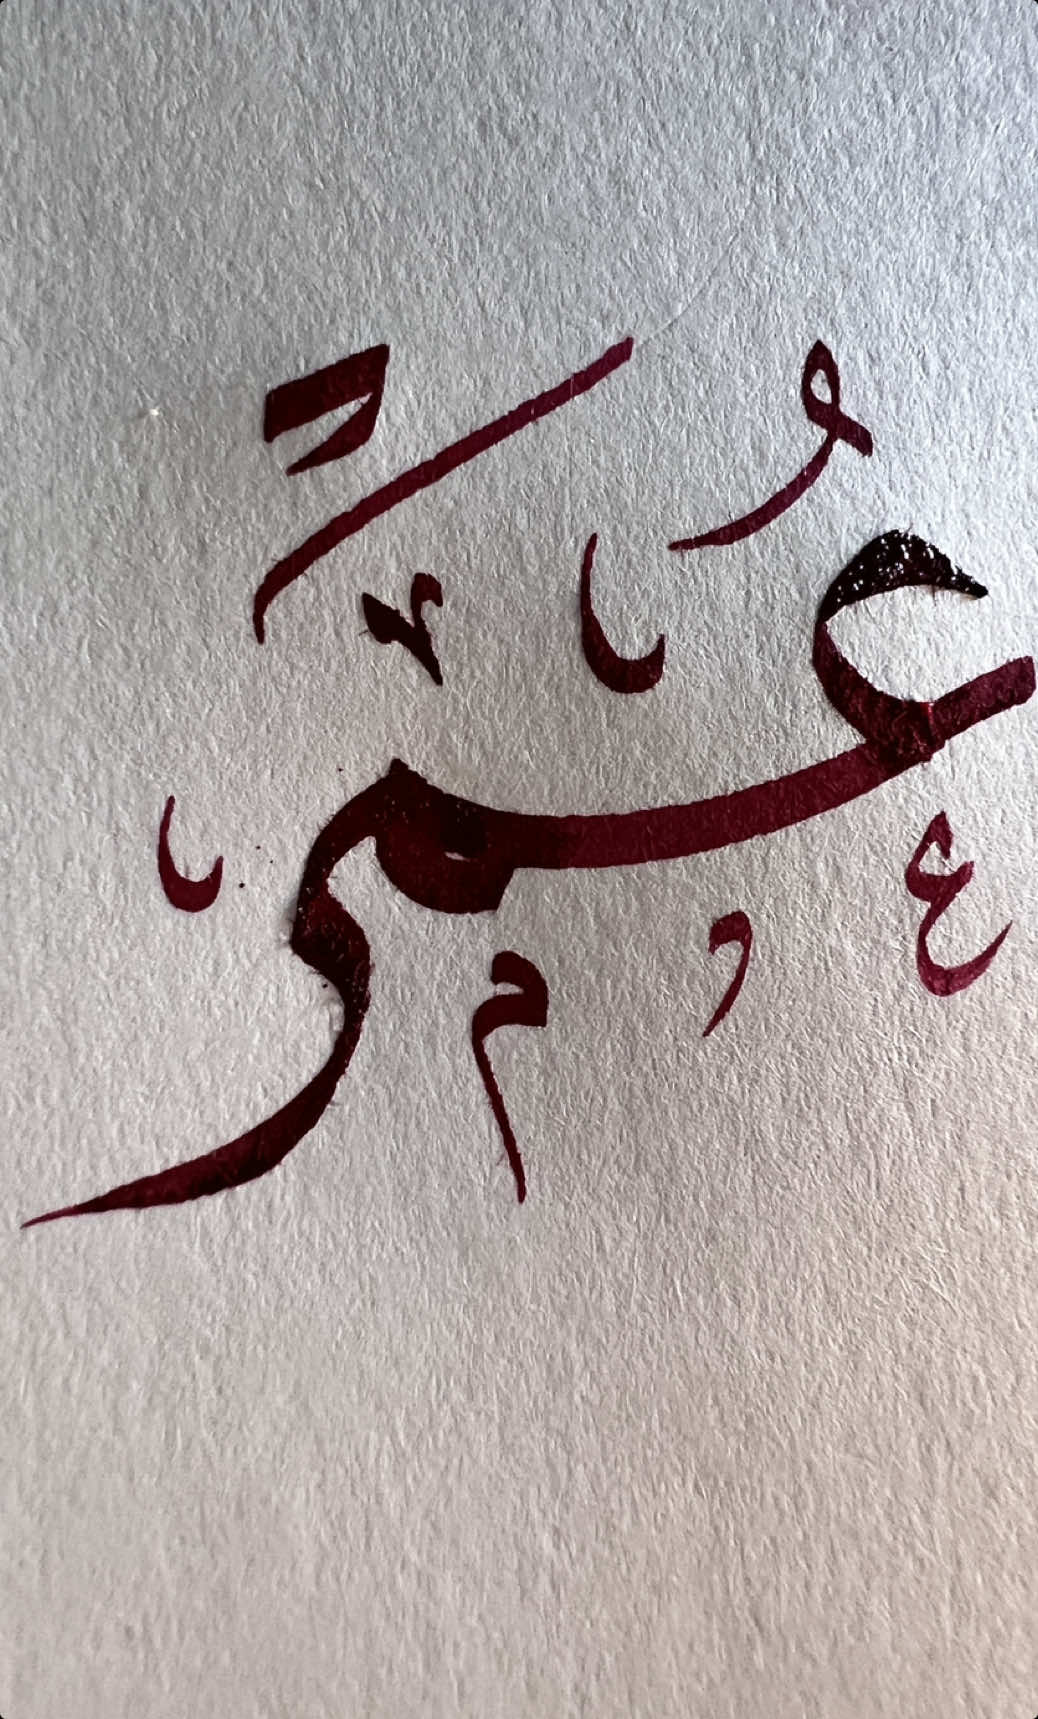 عُمَر